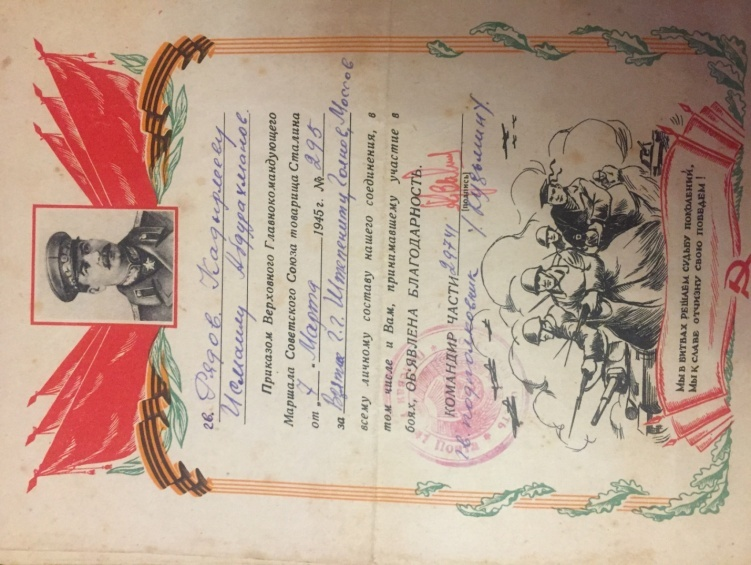 гв. Рядов. Кадырлееву
Исмаилу Абдурахманов.
Приказом Верховного Главнокомандующего
Маршала Советского Союза товарища Сталина
от „7“ Марта 1945 г. № 295
за взятие г.г. Штепенитц, Голнов, Массов
всему личному составу нашего соединения, в
том числе и Вам, принимавшему участие в
боях, ОБ'ЯВЛЕНА БЛАГОДАРНОСТЬ.
КОМАНДИР ЧАСТИ 29741
(подпись)
гв. подполковник /Кузьмин/
МЫ В БИТВАХ РЕШАЕМ СУДЬБУ ПОКОЛЕНИЙ,
МЫ К СЛАВЕ ОТЧИЗНУ СВОЮ ПОВЕДЕМ!